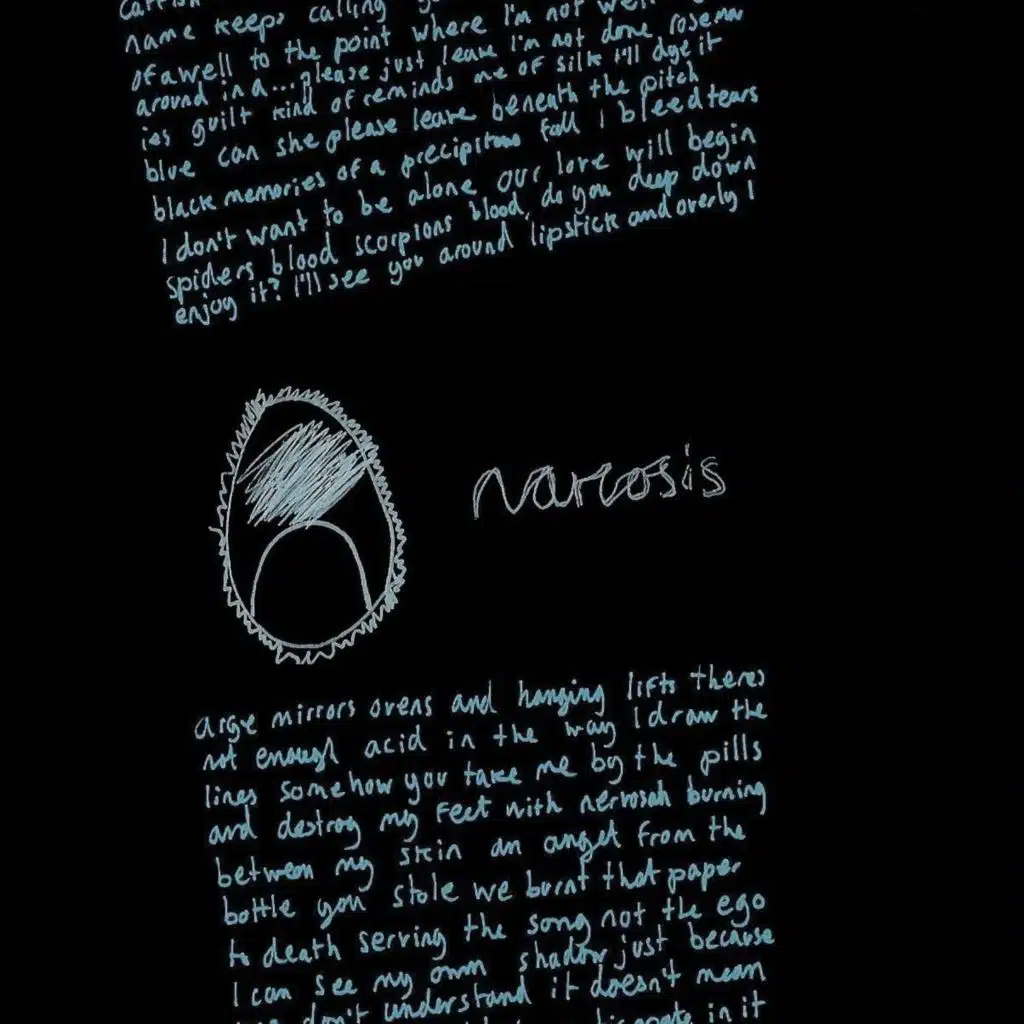 name keeps calling
of a well to the point where I'm not well
around in a... please just leave I'm not done rosema
ies guilt kind of reminds me of silk I'll dye it
blue can she please leave beneath the pitch
black memories of a precipitous fall I bleed tears
I don't want to be alone our love will begin
spiders blood scorpions blood, do you deep down
enjoy it? I'll see you around lipstick and overly I
narcosis
arge mirrors ovens and hanging lifts theres
not enough acid in the way I draw the
lines somehow you take me by the pills
and destroy my feet with nervosah burning
between my skin an angel from the
bottle you stole we burnt that paper
to death serving the song not the ego
I can see my own shadow just because
don't understand it doesn't mean
in it